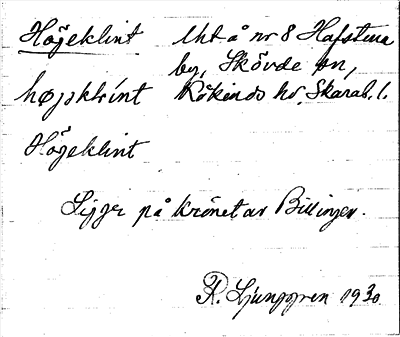 Höjeklint Utt å nr 8 Hafstena
by, Skövde sn,
højsklint Kåkinds hd, Skarab. l.
Höjeklint
Ligger på krönet av Billingen.
R. Ljunggren 1930